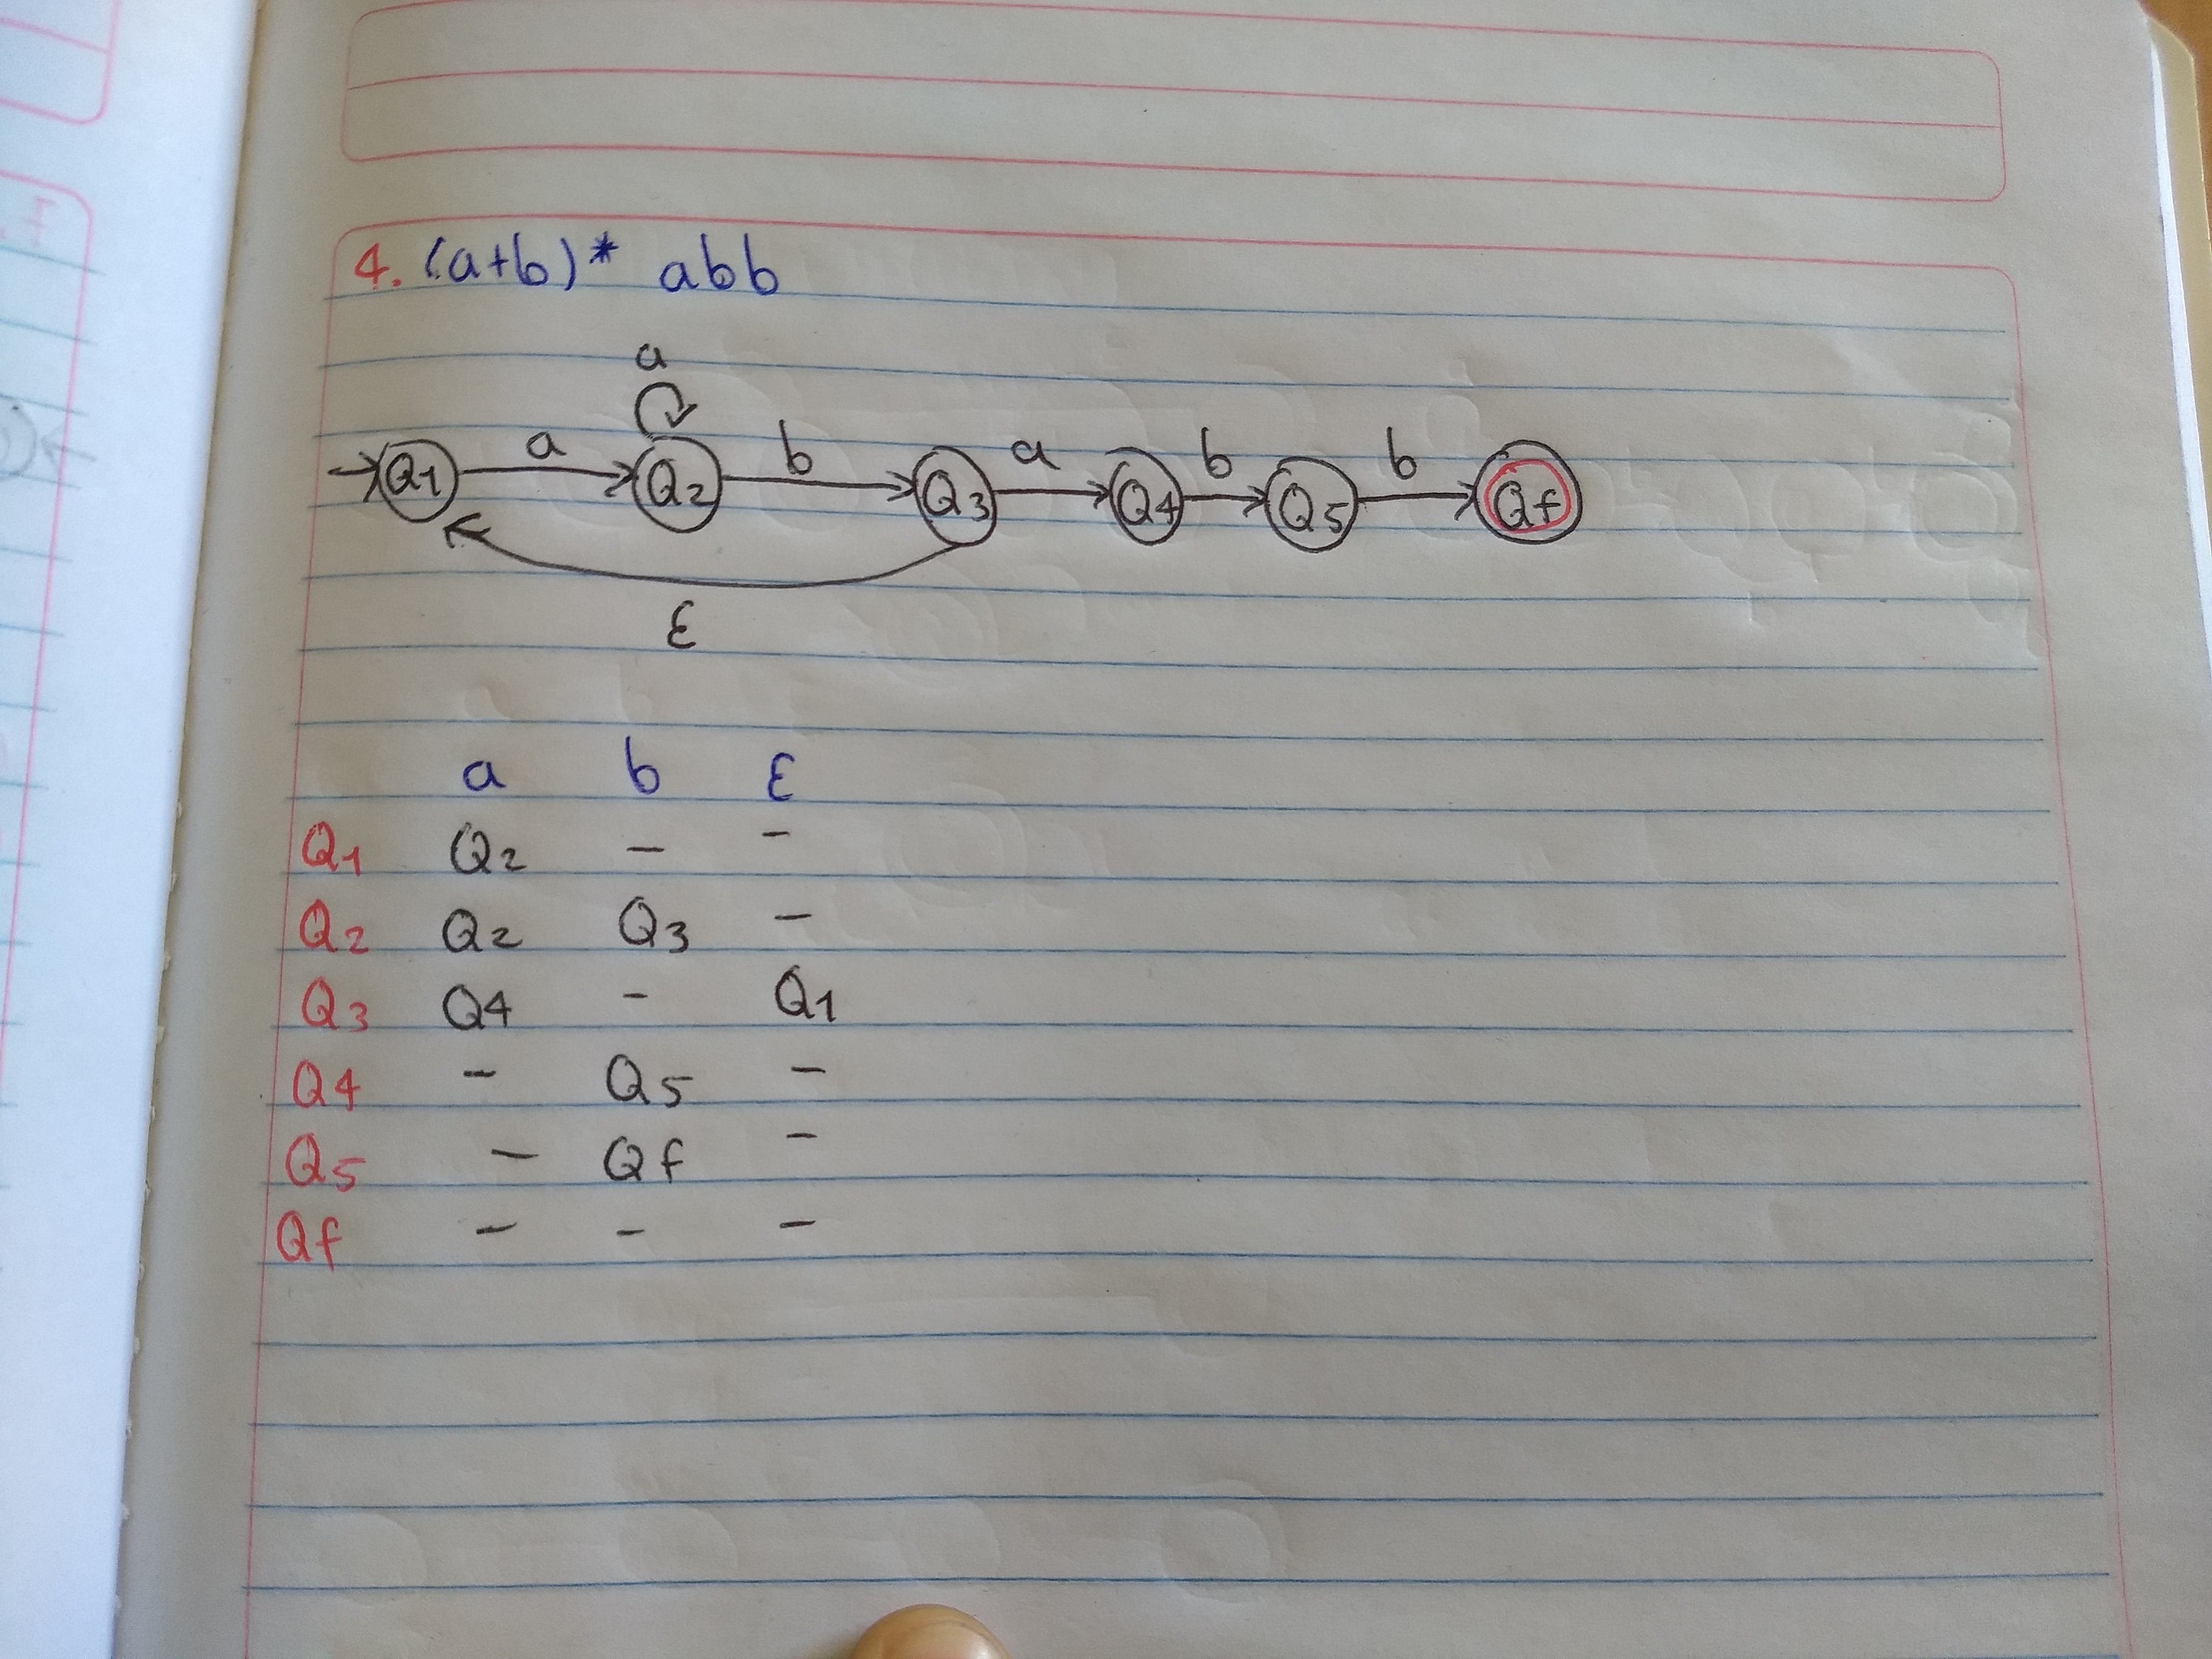 4. (a+b)* abb
a
Q1 a Q2 b Q3 a Q4 b Q5 b Qf
ε
a b ε
Q1 Q2 - -
Q2 Q2 Q3 -
Q3 Q4 - Q1
Q4 - Q5 -
Q5 - Qf -
Qf - - -